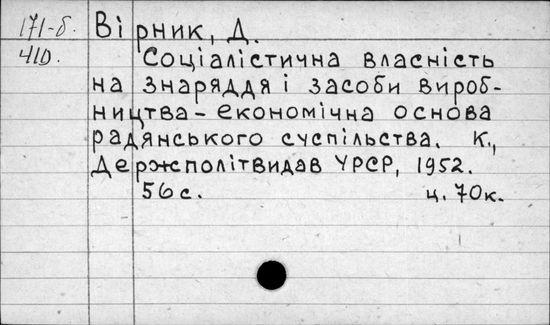 171-б. Вірник, Д.
410. Соціалістична власність
на знаряддя і засоби вироб-
ництва - економічна основа
радянського суспільства. К.,
Держполітвидав УРСР, 1952.
56 с. ц. 70 к.